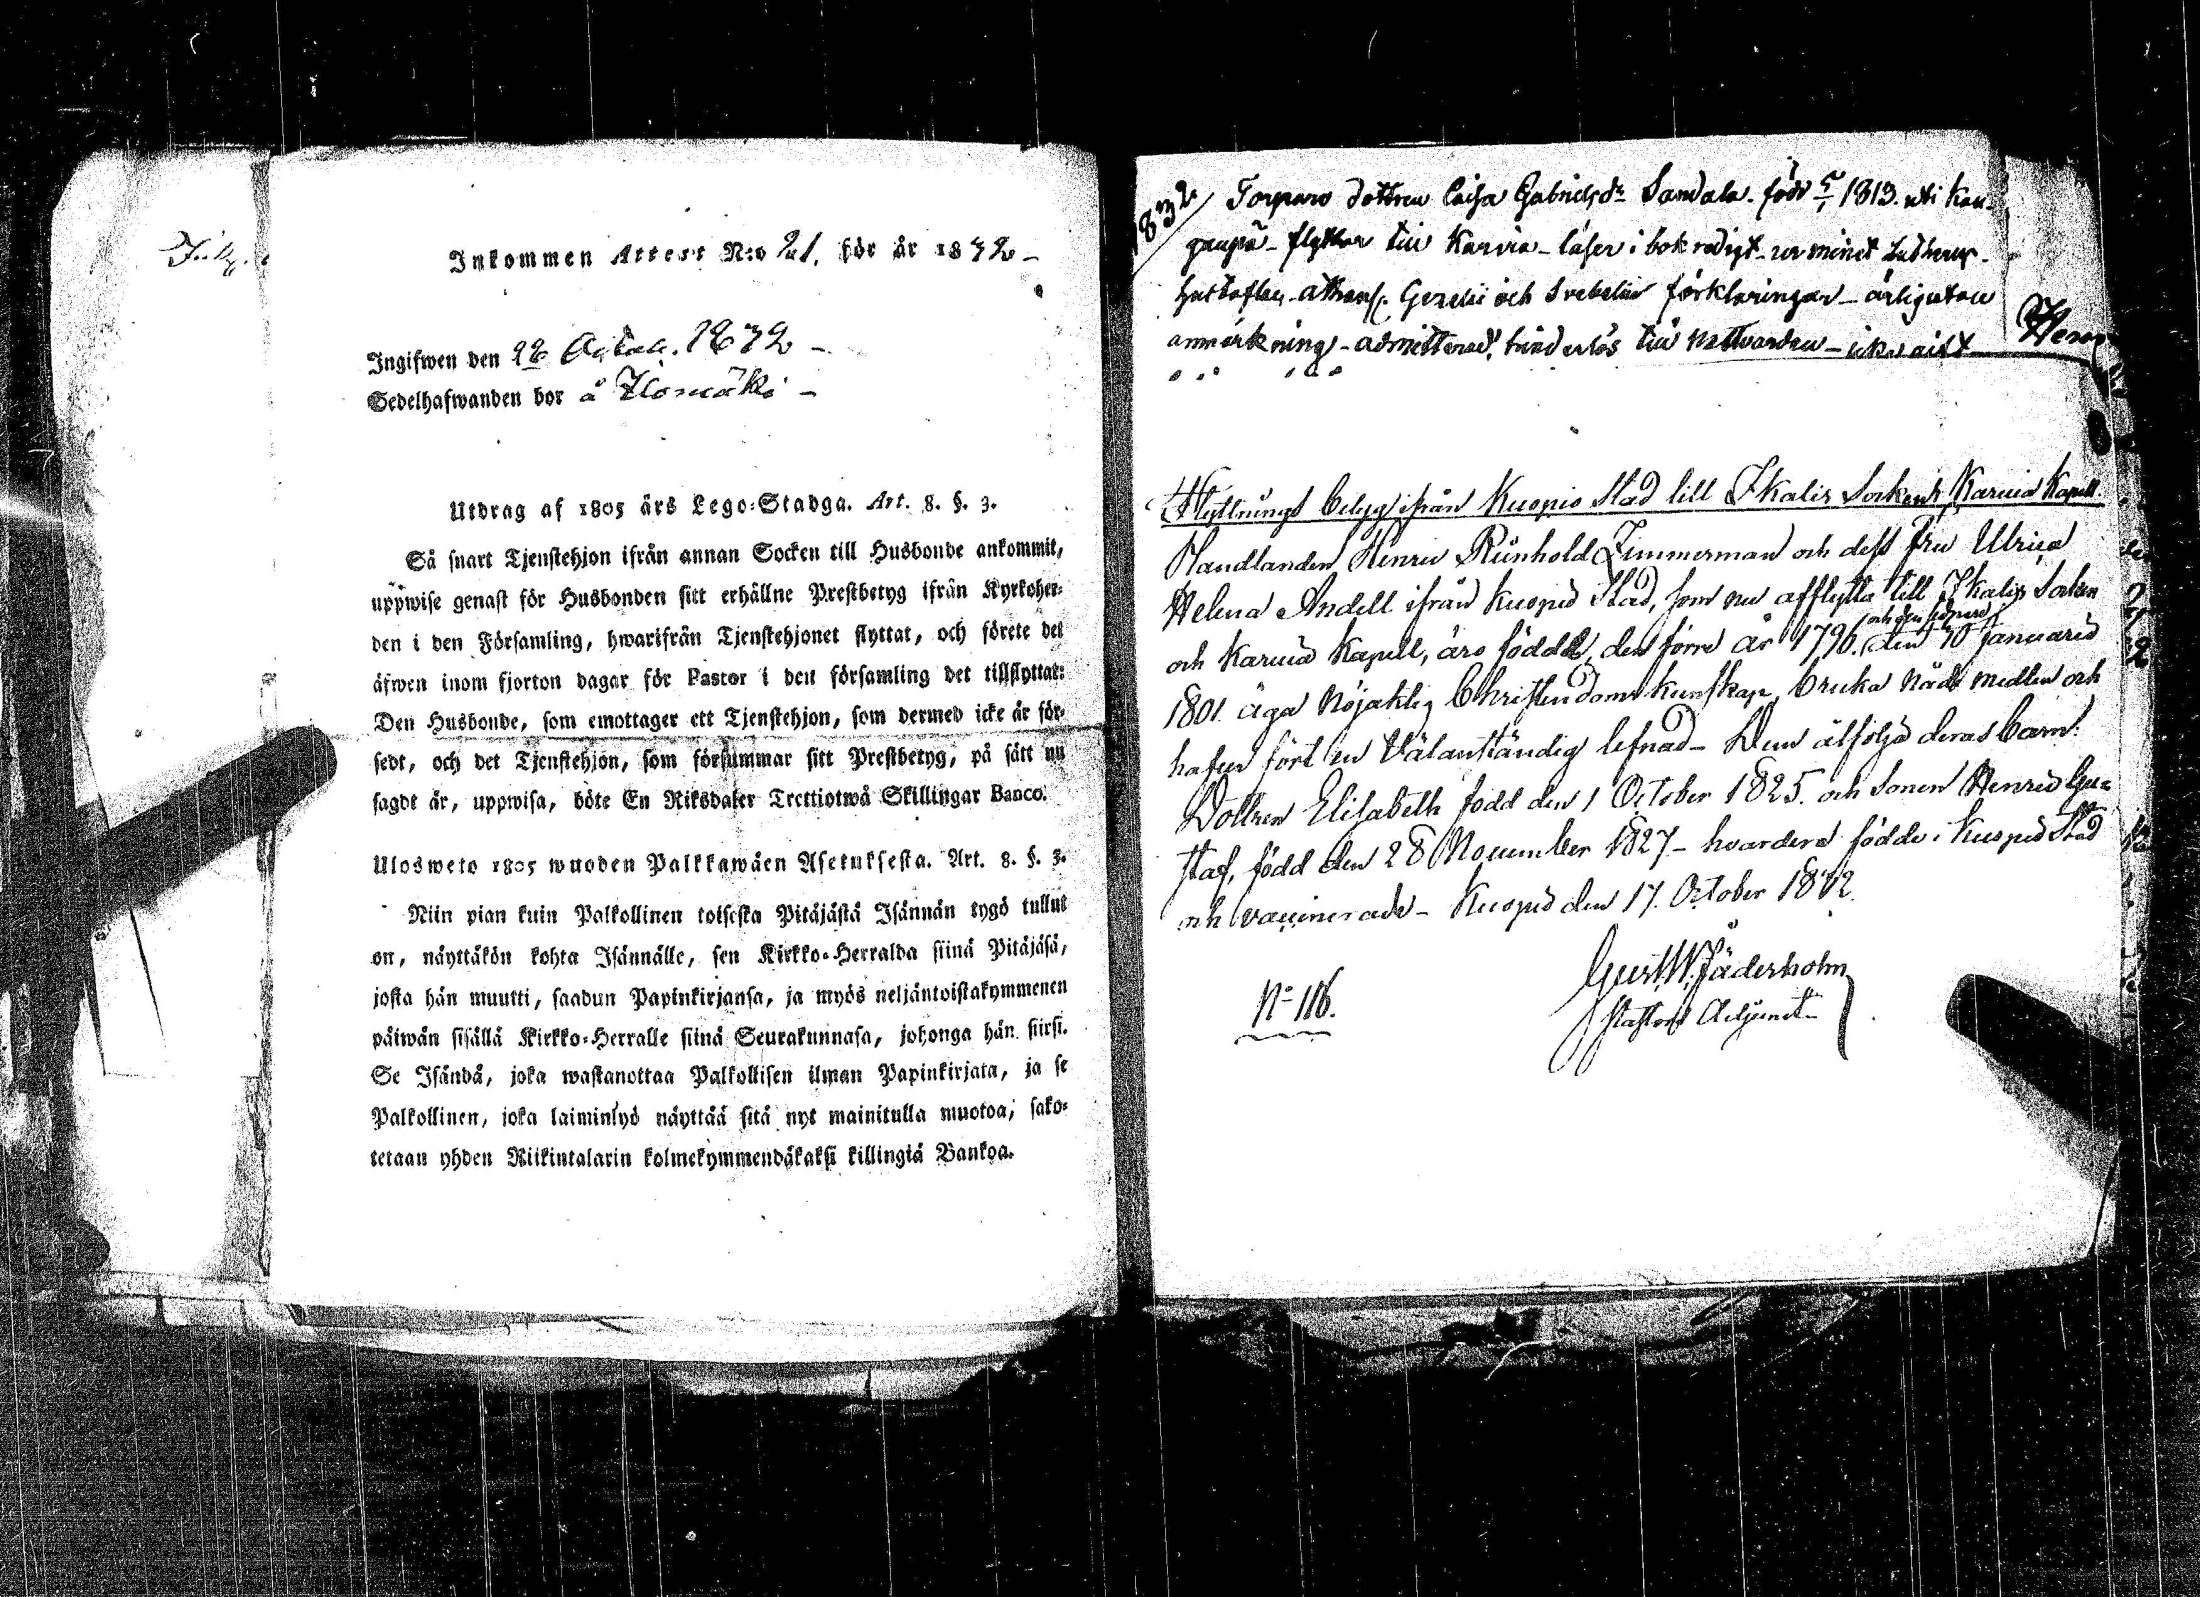 Inkommen Attest N:o 21. för år 1832 –
Ingifwen den 28 Octob. 1832 –
Sedelhafwanden bor å Ilomäki –
Utdrag af 1805 års Lego-Stadga. Art. 8. §. 3.
Så snart Tjenstehjon ifrån annan Socken till Husbonde ankommit,
uppwise genast för Husbonden sitt erhållne Prestbetyg ifrån Kyrkoher-
den i den Församling, hwarifrån Tjenstehjonet flyttat, och förete det
äfwen inom fjorton dagar för Pastor i den församling det tillflyttat:
Den Husbonde, som emottager ett Tjenstehjon, som dermed icke är för-
sedt, och det Tjenstehjon, som försummar sitt Prestbetyg, på sätt nu
sagdt är, uppwisa, böte En Riksdaler Trettiotwå Skillingar Banco.
Ulosweto 1805 wuoden Palkkawäen Asetuksesta. Art. 8. §. 3.
Niin pian kuin Palkollinen toisesta Pitäjästä Isännän tygö tullut
on, näyttäkön kohta Isännälle, sen Kirkko-Herralda siinä Pitäjäsä,
josta hän muutti, saadun Papinkirjansa, ja myös neljäntoistakymmenen
päiwän sisällä Kirkko-Herralle siinä Seurakunnasa, johonga hän siirsi.
Se Isändä, joka wastanottaa Palkollisen ilman Papinkirjata, ja se
Palkollinen, joka laiminlyö näyttää sitä nyt mainitulla muotoa, sako-
tetaan yhden Riikintalarin kolmekymmendäkaksi killingiä Bankoa.
1832 Torpars dottren Caisa Gabrielsdr Sandala. född 1813. uti Kan-
gaspä – flyttar till Karvia – läser i bok redigt – ur minnet Lutherus –
hustaflan – Athanas. Gezelii och Svebelii förklaringar – ärlig utan
anmärkning – admitterad, hinderlös till Nattvarden –
Flyttnings betyg ifrån Kuopio Stad till Ikalis Sockens Karvia Kapell.
Handlanden Henric Reinhold Zimmerman och dess Fru Ulrica
Helena Andell ifrån Kuopio Stad, som nu afflytta till Ikalis Socken
och Karvia Kapell, äro födde, den förre år 1796. och den sednare den 10 Januarii
1801. äga nöjaktig Christendoms kunskap, bruka nåde medlen och
hafva fört en Välanständig lefnad – Dem åtfölja deras barn:
Dottren Elisabeth född den 1 October 1825. och Sonen Henric Gu-
staf, född den 28 November 1827 – hvardera födde i Kuopio Stad
och vaccinerade – Kuopio den 17. October 1832.
Gust. W. Jäderholm
Pastors Adjunct
N:o 116.